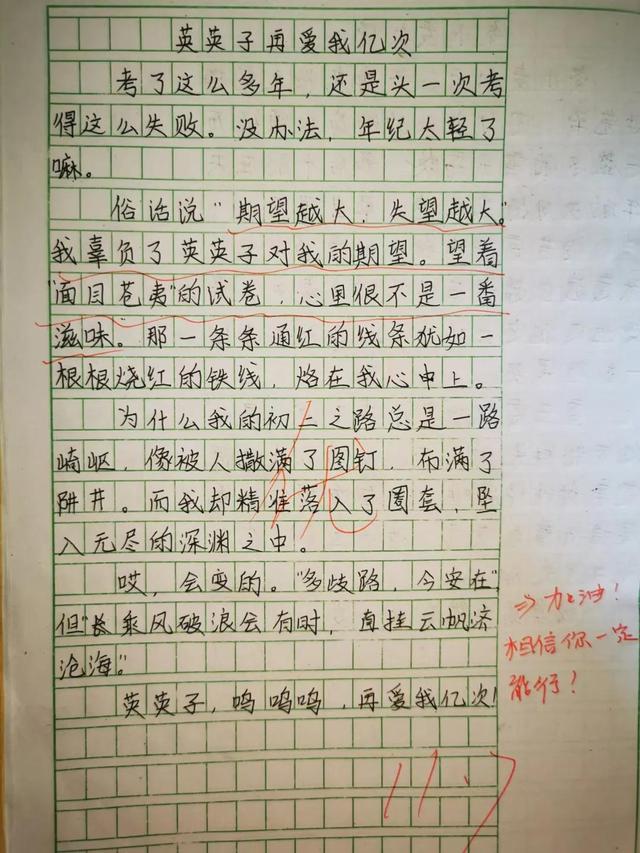 英英子再爱我亿次
考了这么多年，还是头一次考
得这么失败。没办法，年纪太轻了
嘛。
俗话说“期望越大，失望越大。”
我辜负了英英子对我的期望。望着
“面目苍夷”的试卷，心里很不是一番
滋味。那一条条通红的线条犹如一
根根烧红的铁线，烙在我心申上。
为什么我的初二之路总是一路
崎岖，像被人撒满了图钉，布满了
阱井。而我却精准落入了圈套，坠
入无尽的深渊之中。
哎，会变的。“多歧路，今安在”
但“长乘风破浪会有时，直挂云帆济
沧海。”
英英子，呜呜呜，再爱我亿次！
⇒加油！
相信你一定
能行！
11.7